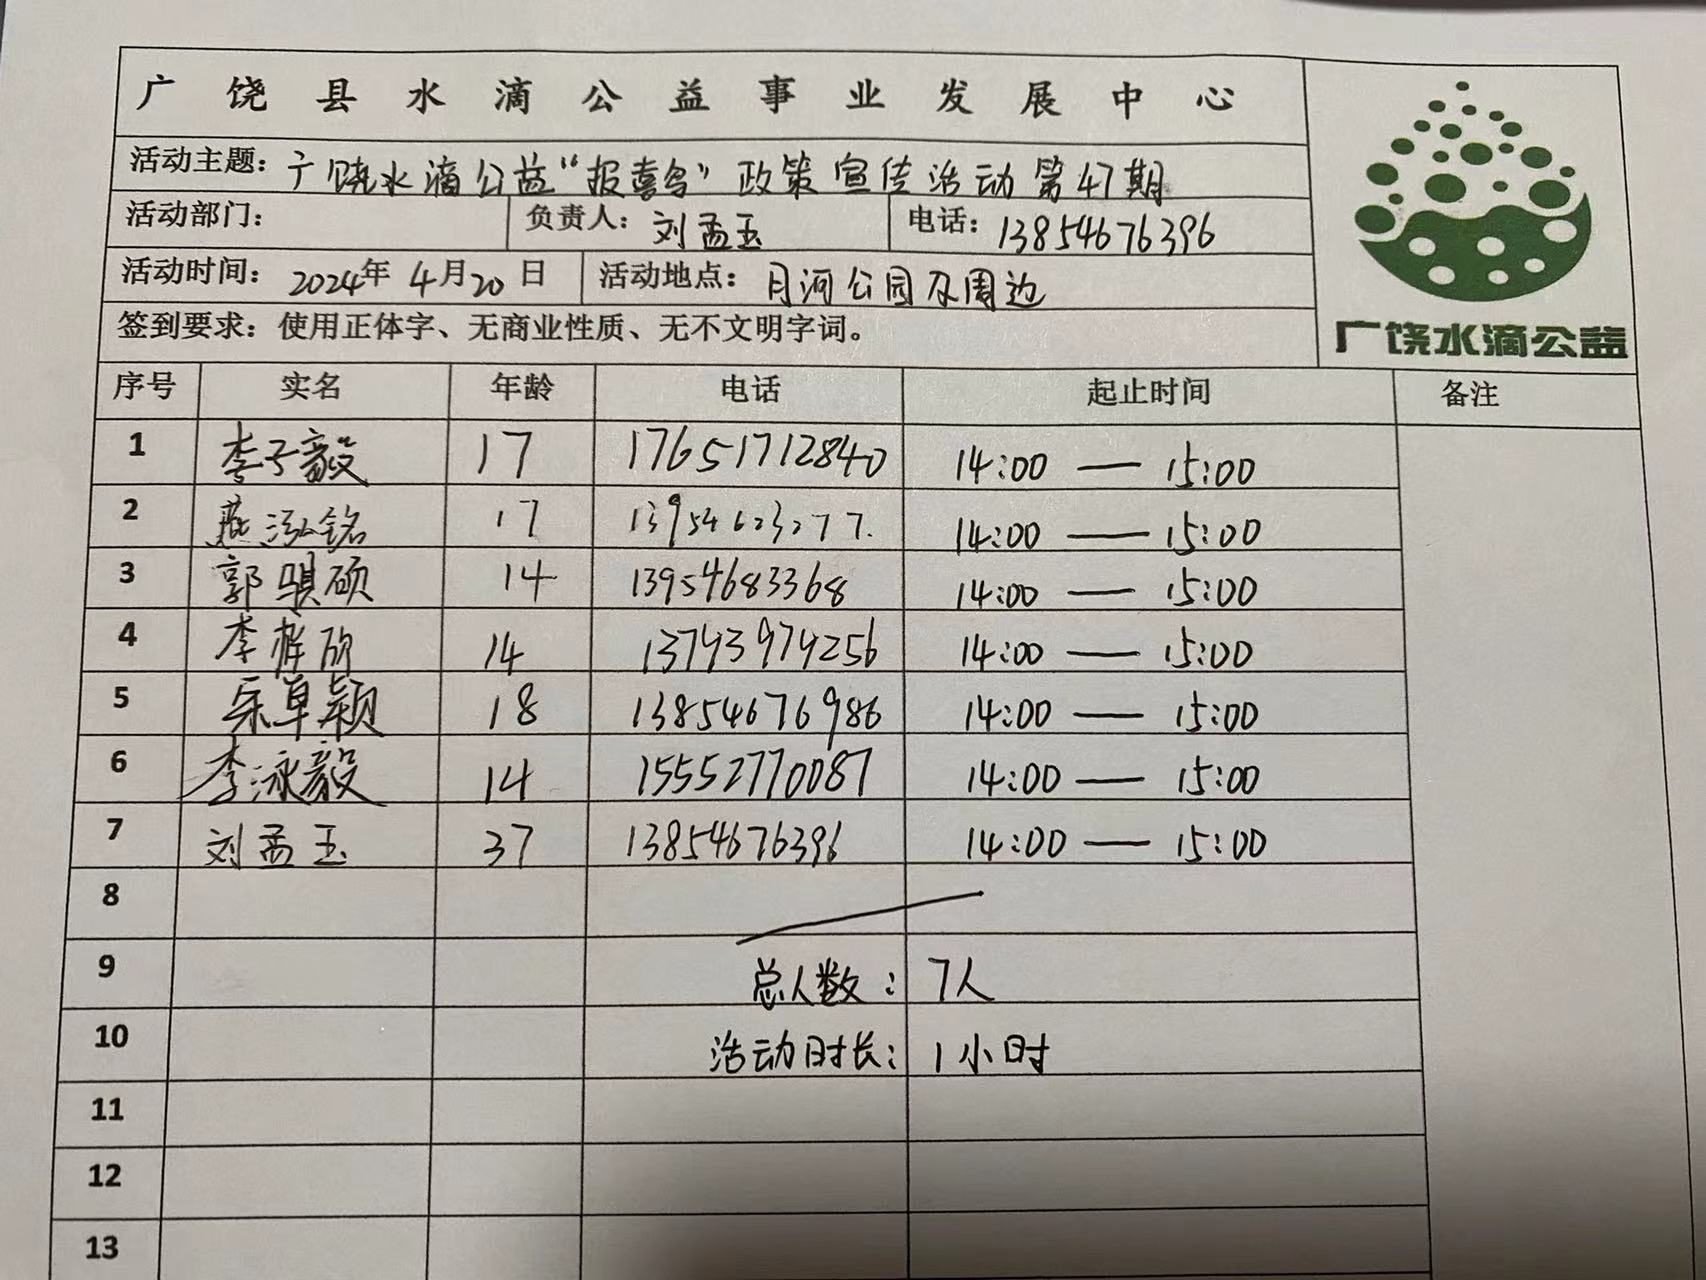 广饶县水滴公益事业发展中心
活动主题：广饶水滴公益“报喜鸟”政策宣传活动第47期
活动部门： 负责人：刘孟玉 电话：13854676396
活动时间：2024年4月20日 活动地点：月河公园及周边
签到要求：使用正体字、无商业性质、无不文明字词。
广饶水滴公益
序号 实名 年龄 电话 起止时间 备注
1 李子毅 17 17651712840 14:00 — 15:00
2 燕泓铭 17 13954623277. 14:00 — 15:00
3 郭骐硕 14 13954683368 14:00 — 15:00
4 李梓欣 14 14:00 — 15:00
5 卓颖 18 13854676986 14:00 — 15:00
6 李泳毅 14 15552770087 14:00 — 15:00
7 刘孟玉 37 13854676396 14:00 — 15:00
8
9 总人数：7人
10 活动时长：1小时
11
12
13